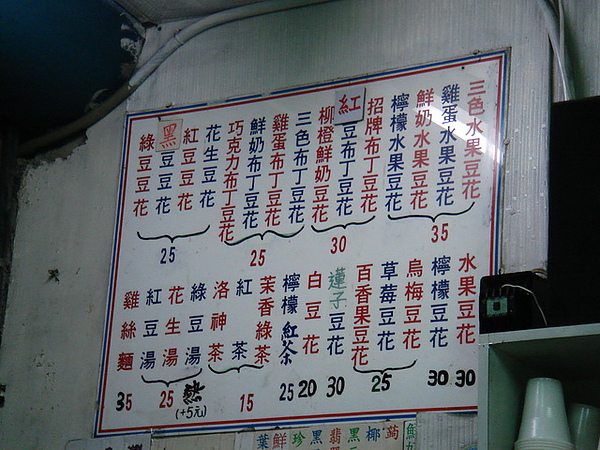 三色水果豆花
雞蛋水果豆花
鮮奶水果豆花
檸檬水果豆花
35
招牌布丁豆花
紅豆布丁豆花
柳橙鮮奶豆花
30
三色布丁豆花
雞蛋布丁豆花
鮮奶布丁豆花
巧克力布丁豆花
25
花生豆花
紅豆豆花
黑豆豆花
綠豆豆花
25
水果豆花
30
檸檬豆花
30
烏梅豆花
草莓豆花
百香果豆花
25
蓮子豆花
30
白豆花
20
檸檬紅茶
25
茉香綠茶
紅茶
洛神茶
15
綠豆湯
花生湯
紅豆湯
25
熱
(+5元)
雞絲麵
35
蒟
椰
黑
翡
黑
珍
鮮
葉